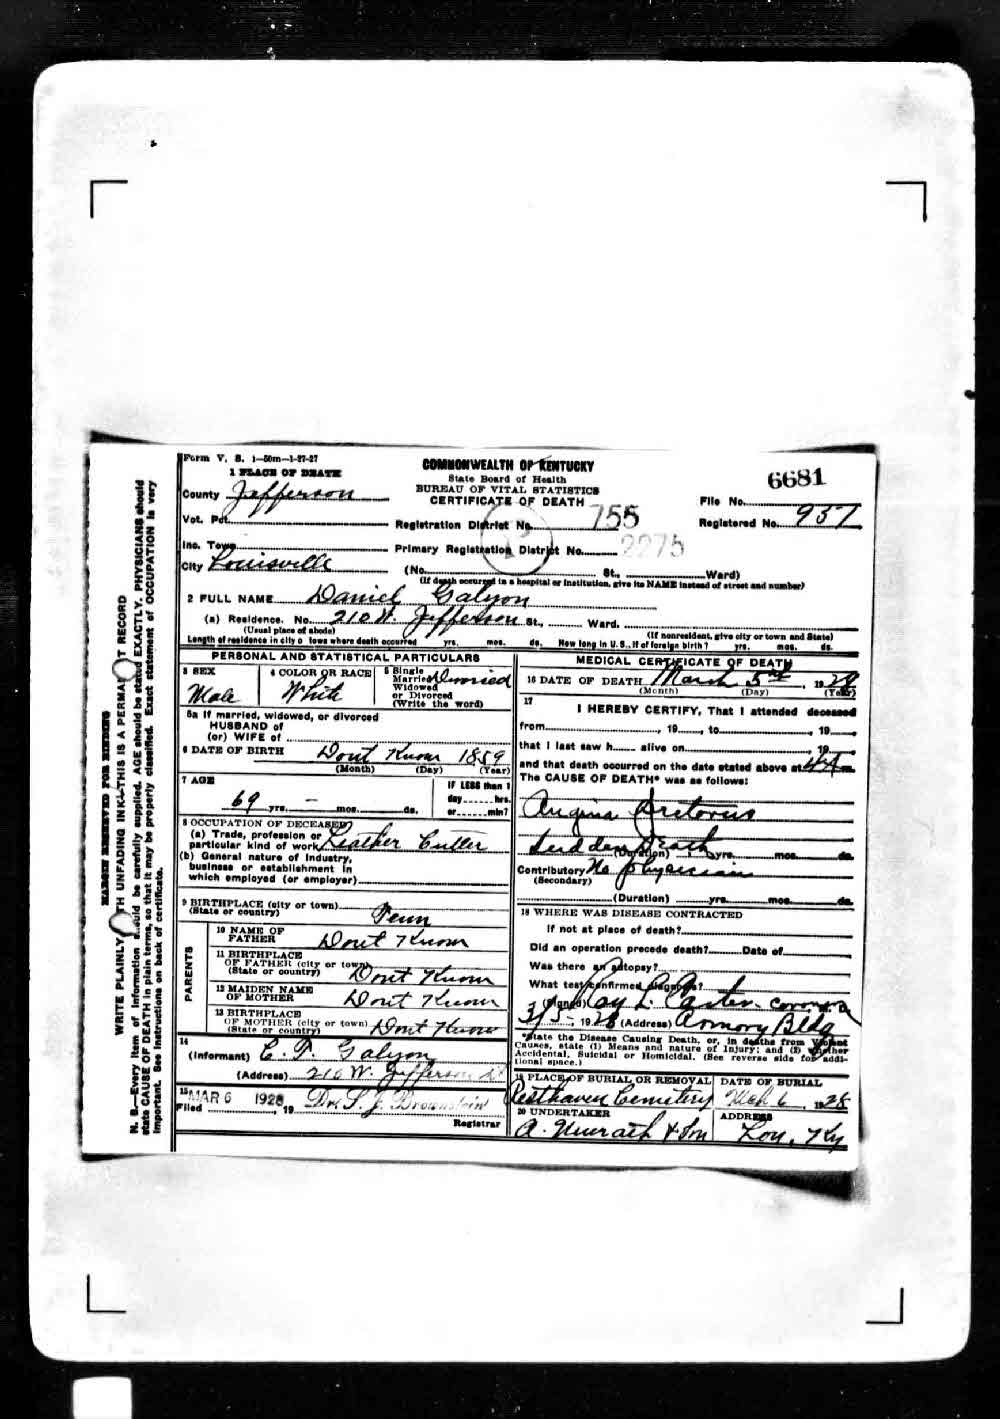 Form V. S. 1—50m—1-27-27
1 PLACE OF DEATH
COMMONWEALTH OF KENTUCKY
State Board of Health
BUREAU OF VITAL STATISTICS
CERTIFICATE OF DEATH
6681
County Jefferson
File No.
Vot. Pct.
Registration District No. 755
Registered No. 957
Inc. Town
Primary Registration District No. 2275
City Louisville
(No. St., Ward)
(If death occurred in a hospital or institution, give its NAME instead of street and number)
2 FULL NAME Daniel Galyon
(a) Residence. No. 210 W. Jefferson St., Ward.
(Usual place of abode) (If nonresident, give city or town and State)
Length of residence in city o town where death occurred yrs. mos. ds. How long in U. S., if of foreign birth? yrs. mos. ds.
PERSONAL AND STATISTICAL PARTICULARS
3 SEX
Male
4 COLOR OR RACE
White
5 Single
Married
Widowed
or Divorced
(Write the word)
Divorced
5a If married, widowed, or divorced
HUSBAND of
(or) WIFE of
6 DATE OF BIRTH Dont Know 1859
(Month) (Day) (Year)
7 AGE
69 yrs. – mos. ds.
IF LESS than 1
day hrs.
or min?
8 OCCUPATION OF DECEASED
(a) Trade, profession or
particular kind of work Leather Cutter
(b) General nature of industry,
business or establishment in
which employed (or employer)
9 BIRTHPLACE (city or town)
(State or country) Penn
PARENTS
10 NAME OF
FATHER Dont Know
11 BIRTHPLACE
OF FATHER (city or town)
(State or country) Dont Know
12 MAIDEN NAME
OF MOTHER Dont Know
13 BIRTHPLACE
OF MOTHER (city or town)
(State or country) Dont Know
14
(Informant) Galyon
(Address) 210 W. Jefferson St
15
Filed MAR 6 1928, 19 Dr. S. J. Brownstein
Registrar
MEDICAL CERTIFICATE OF DEATH
16 DATE OF DEATH March 5th, 1928
(Month) (Day) (Year)
17
I HEREBY CERTIFY, That I attended deceased
from , 19 , to , 19 ,
that I last saw h alive on , 19 ,
and that death occurred on the date stated above at m.
The CAUSE OF DEATH* was as follows:
Angina Pectorus
Sudden Death
(Duration) yrs. mos. ds.
Contributory No physician
(Secondary)
(Duration) yrs. mos. ds.
18 WHERE WAS DISEASE CONTRACTED
If not at place of death?
Did an operation precede death? Date of
Was there an autopsy?
What test confirmed diagnosis?
(Signed) Roy L. Carter coroner
3/5, 1928 (Address) Armory Bldg
*State the Disease Causing Death, or, in deaths from Violent
Causes, state (1) Means and nature of Injury; and (2) whether
Accidental, Suicidal or Homicidal. (See reverse side for addi-
tional space.)
19 PLACE OF BURIAL OR REMOVAL
Resthaven Cemetery
DATE OF BURIAL
Mch 6, 1928
20 UNDERTAKER
& Son
ADDRESS
Lou, Ky
MARGIN RESERVED FOR BINDING
WRITE PLAINLY TH UNFADING INK—THIS IS A PERMA T RECORD
N. B.—Every item of information should be carefully supplied. AGE should be stated EXACTLY. PHYSICIANS should
state CAUSE OF DEATH in plain terms, so that it may be properly classified. Exact statement of OCCUPATION is very
important. See instructions on back of certificate.